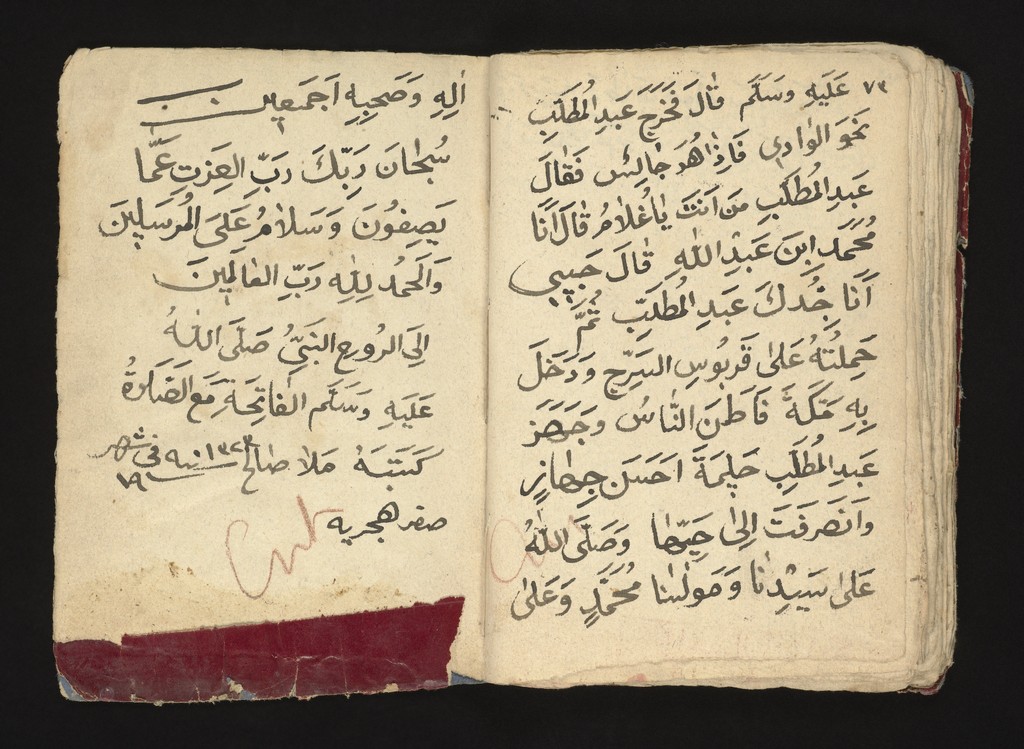 ٧٣ عَلَيهِ وَسَلَّمَ قٰالَ فَخَرَجَ عَبدِالمُطَّلِبِ
نَحوَ الوٰادِى فَاِذٰا هُوَ جٰالِسٌ فَقٰالَ
عَبدِالمُطَّلِبِ مَن اَنتَ يٰاغُلٰامُ قٰالَ اَنَا
مُحَمَّد ابنَ عَبدِ اللّٰهِ قٰالَ حَبِيبِى
اَنَا جَدُّكَ عَبدِ المُطَّلِبِ ثُمَّ
حَمِلتُهُ عَلىٰ قَربُوسِ السَرجِ وَدَخَلَ
بِهِ مَكَةَ فَاطمَنَ النّٰاسُ وَجَهَّزَ
عَبدِالمُطَّلِبِ حَلِيمَةَ اَحسَنَ جِهٰازٍ
وَانصَرفَتَ اِلىٰ حَيِّهٰا وَصَلَّى اللّٰهُ
عَلىٰ سَيِّدِنٰا وَمَولٰينٰا مُحَمَّدٍ وَعَلىٰ
اٰلِهِ وَصَحبِهِ اَجمَعِين
سُبحٰانَ رَبِّكَ رَبِّ العِزتِ عَمّٰا
يَصِفُونَ وَسَلٰامُ عَلىَ المُرسَلِينَ
وَالحَمدُ لِلّٰهِ رَبِّ العٰالَمِينَ
اِلىَ الرُوحِ النَبِيِّ صَلَّى اللّٰهُ
عَلَيهِ وَسَلَّم الفٰاتِحَةِ مَعَ الصَلٰوةُ
كَتَبَهُ مَلا صٰالح ١٣٢٣ سنه فى شهر
١٩
صفر هجريه